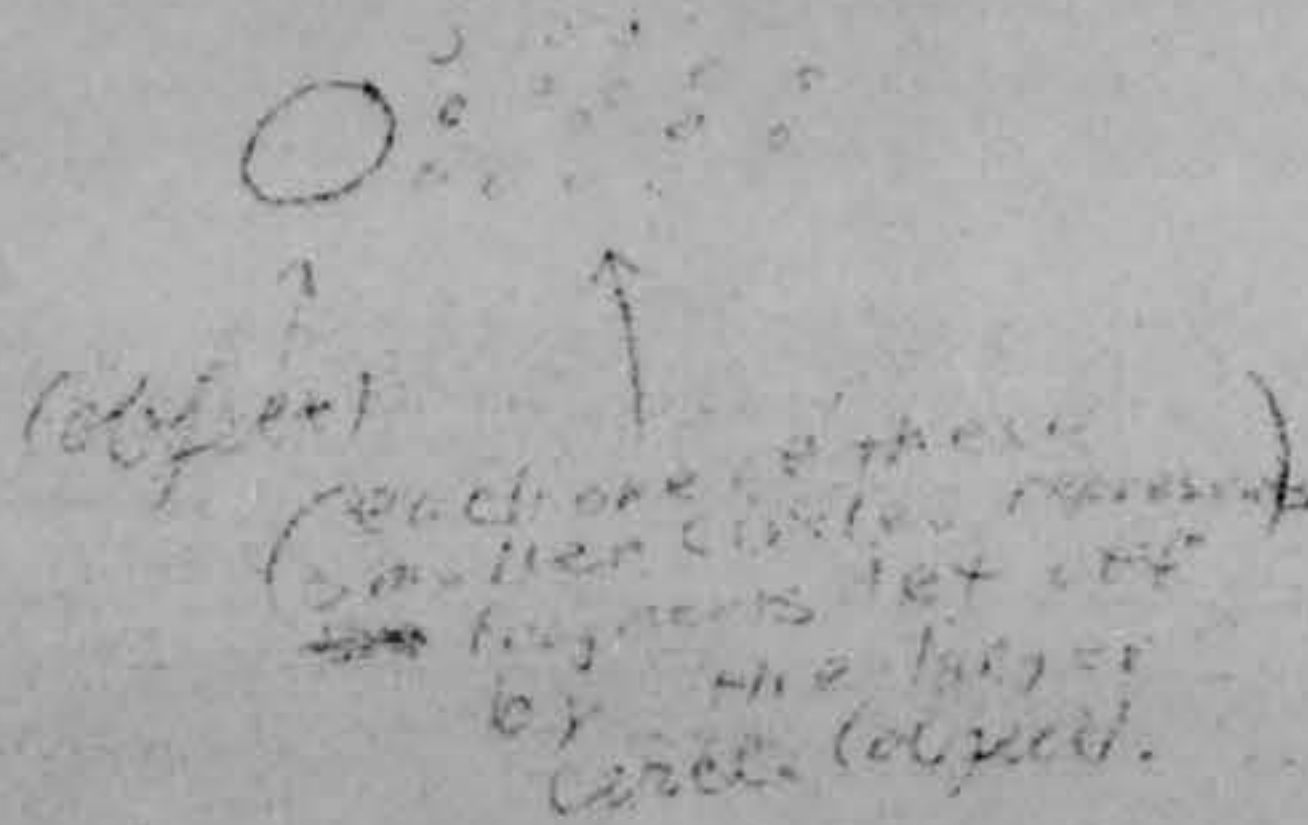 (object)
(each one of these
smaller circles represents)
fragments let off
by the larger
circle (object).